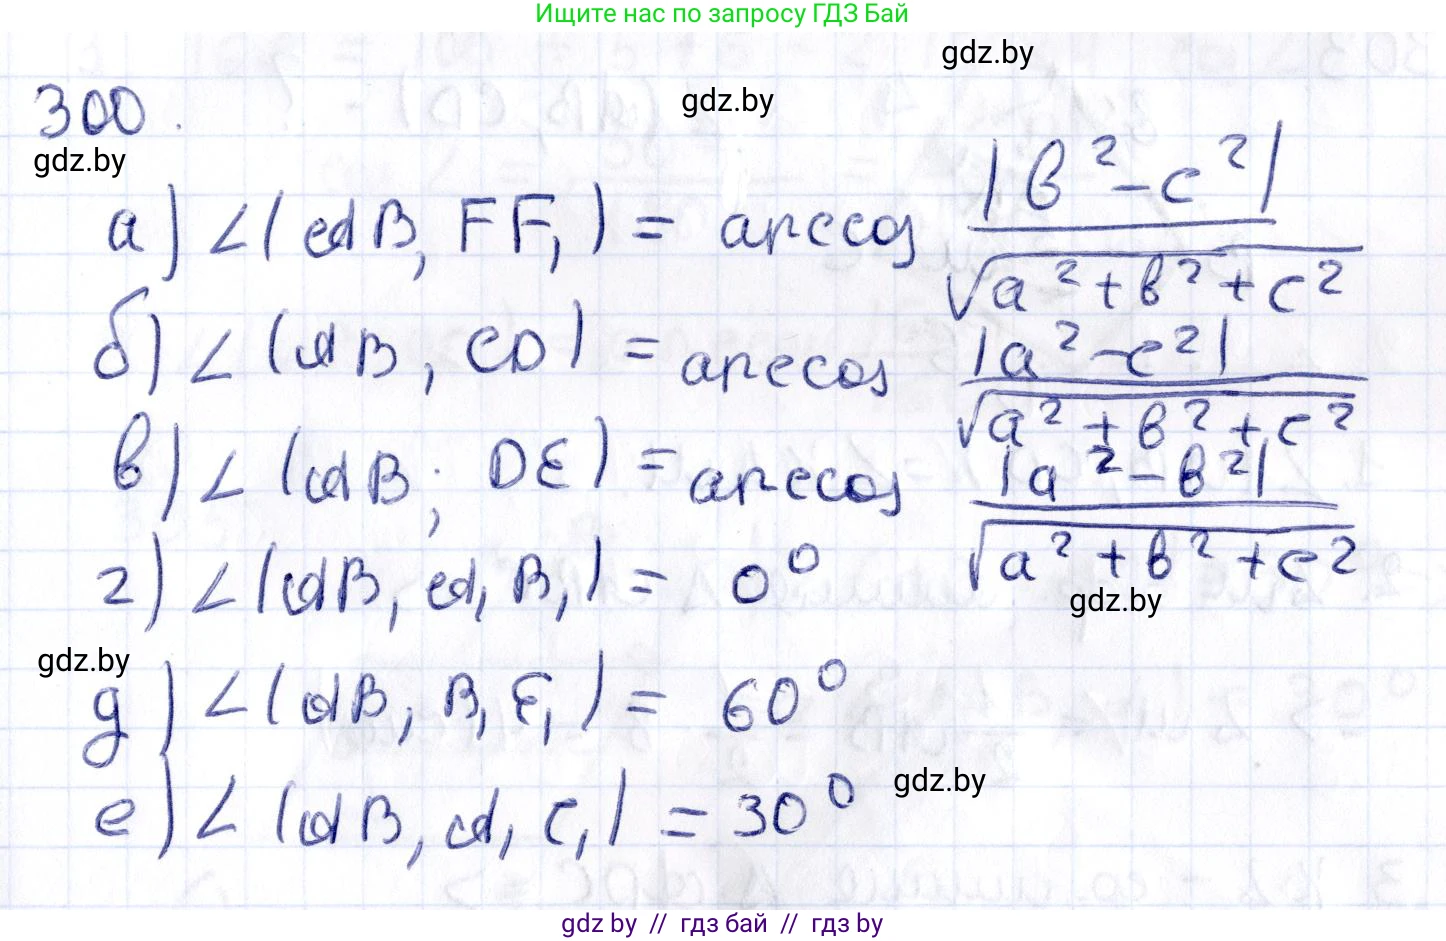 Ищите нас по запросу ГДЗ Бай
gdz.by
gdz.by
300.
gdz.by
а) ∠(AB, FF₁) = arccos |b² - c²| / √a² + b² + c²
б) ∠(AB, CD) = arccos |a² - c²| / √a² + b² + c²
в) ∠(AB; DE) = arccos |a² - b²| / √a² + b² + c²
г) ∠(AB, A₁B₁) = 0°
gdz.by
gdz.by
д) ∠(AB, B₁E₁) = 60°
gdz.by
е) ∠(AB, A₁C₁) = 30°
gdz.by // гдз бай // гдз by